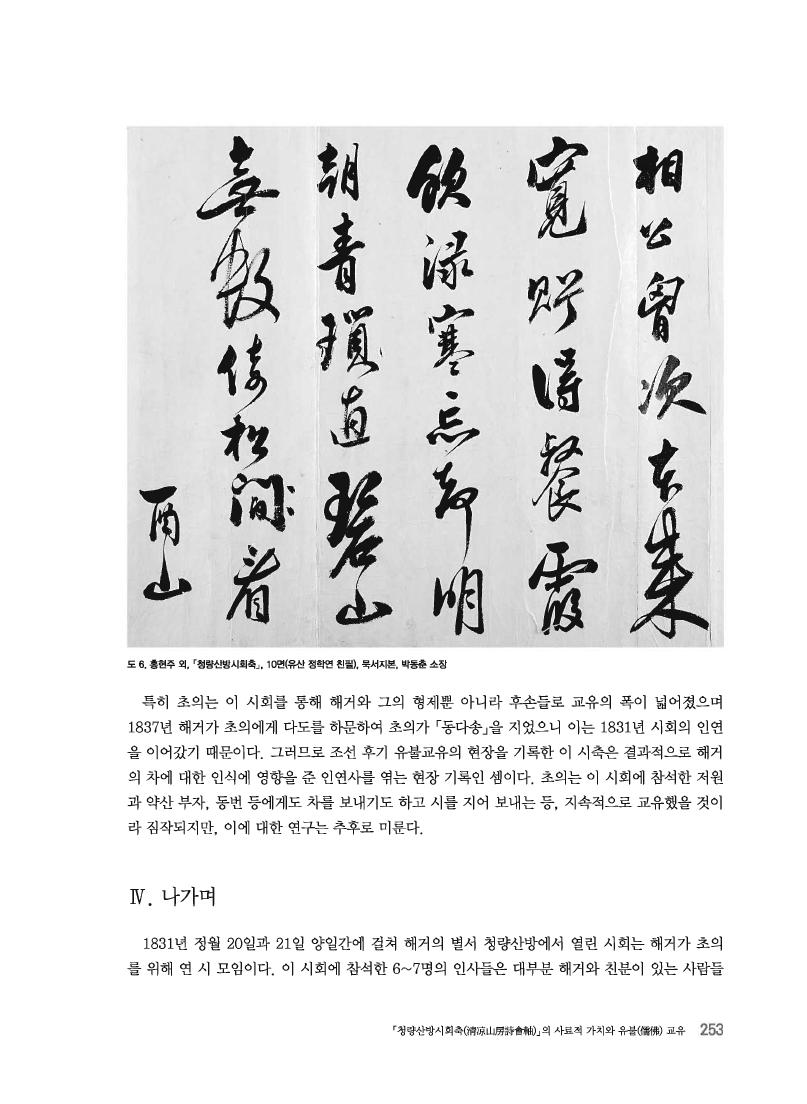 相公胷次本來
寬貯得餐霞
飲淥寒忘却明
朝靑瑣直碧山
喜倚松間看
酉山
도 6. 홍현주 외, 「청량산방시회축」, 10면(유산 정학연 친필), 묵서지본, 박동춘 소장
특히 초의는 이 시회를 통해 해거와 그의 형제뿐 아니라 후손들로 교유의 폭이 넓어졌으며
1837년 해거가 초의에게 다도를 하문하여 초의가 「동다송」을 지었으니 이는 1831년 시회의 인연
을 이어갔기 때문이다. 그러므로 조선 후기 유불교유의 현장을 기록한 이 시축은 결과적으로 해거
의 차에 대한 인식에 영향을 준 인연사를 엮는 현장 기록인 셈이다. 초의는 이 시회에 참석한 저원
과 약산 부자, 동번 등에게도 차를 보내기도 하고 시를 지어 보내는 등, 지속적으로 교유했을 것이
라 짐작되지만, 이에 대한 연구는 추후로 미룬다.
Ⅳ. 나가며
1831년 정월 20일과 21일 양일간에 걸쳐 해거의 별서 청량산방에서 열린 시회는 해거가 초의
를 위해 연 시 모임이다. 이 시회에 참석한 6~7명의 인사들은 대부분 해거와 친분이 있는 사람들
「청량산방시회축(淸凉山房詩會軸)」의 사료적 가치와 유불(儒佛) 교유 253